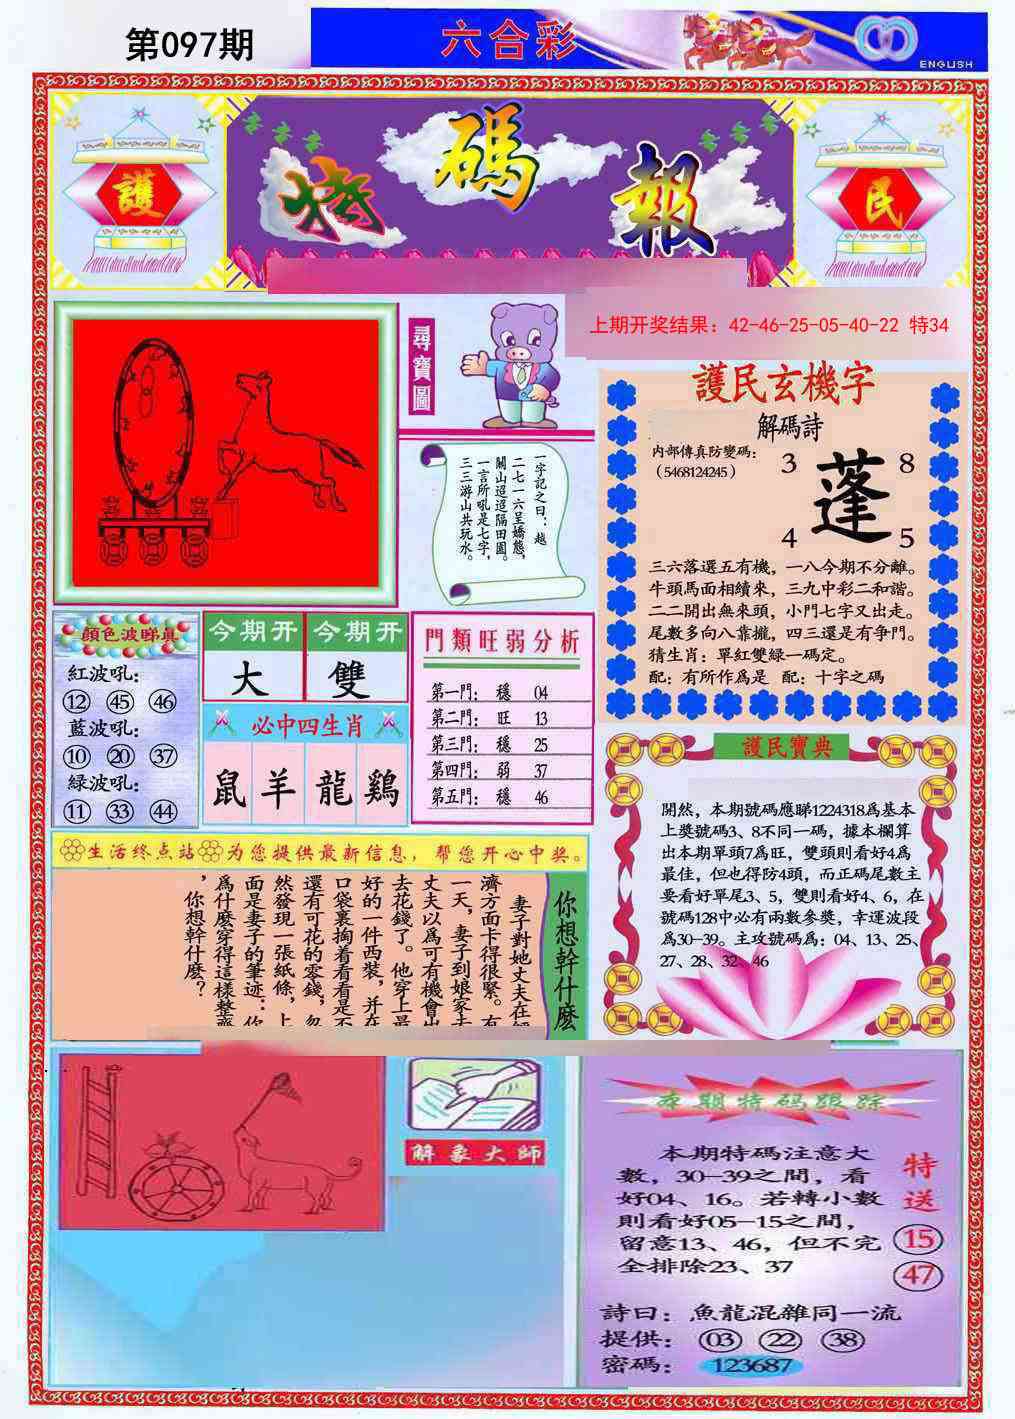 第097期
六合彩
ENGLISH
護
特碼報
民
尋寶圖
上期开奖结果：42-46-25-05-40-22 特34
一字記之曰：越
二七一六呈嬌態，
關山迢迢隔田園。
一言所吼是七字，
三三游山共玩水。
護民玄機字
解碼詩
内部傳真防變碼：
（5468124245）
3 8
蓬
4 5
三六落選五有機，一八今期不分離。
牛頭馬面相續來，三九中彩二和諧。
二二開出無來頭，小門七字又出走。
尾數多向八靠攏，四三還是有争門。
猜生肖：單紅雙緑一碼定。
配：有所作爲是 配：十字之碼
顔色波睇真
紅波吼：
⑫ ㊺ ㊻
藍波吼：
⑩ ⑳ ㊲
緑波吼：
⑪ ㉝ ㊹
今期开 今期开
大 雙
必中四生肖
鼠 羊 龍 鷄
門類旺弱分析
第一門： 穩 04
第二門： 旺 13
第三門： 穩 25
第四門： 弱 37
第五門： 穩 46
護民寶典
開然，本期號碼應睇1224318爲基本
上獎號碼3、8不同一碼，據本欄算
出本期單頭7爲旺，雙頭則看好4爲
最佳，但也得防4頭，而正碼尾數主
要看好單尾3、5，雙則看好4、6，在
號碼128中必有兩數參獎，幸運波段
爲30-39。主攻號碼爲：04、13、25、
27、28、32、46
生活终点站 为您提供最新信息，帮您开心中奖。
你想幹什麽
妻子對她丈夫在
濟方面卡得很緊。有
一天，妻子到娘家去
丈夫以爲可有機會出
去花錢了。他穿上最
好的一件西裝，并在
口袋裏掏着看看是不
還有可花的零錢，忽
然發現一張紙條，上
面是妻子的筆迹：你
爲什麽穿得這樣整齊
，你想幹什麽？
解象大師
本期特码跟踪
本期特碼注意大
數，30-39之間，看
好04、16。若轉小數
則看好05-15之間，
留意13、46，但不完
全排除23、37
特送
⑮
㊼
詩曰：魚龍混雜同一流
提供： 03 22 38
密碼： 123687